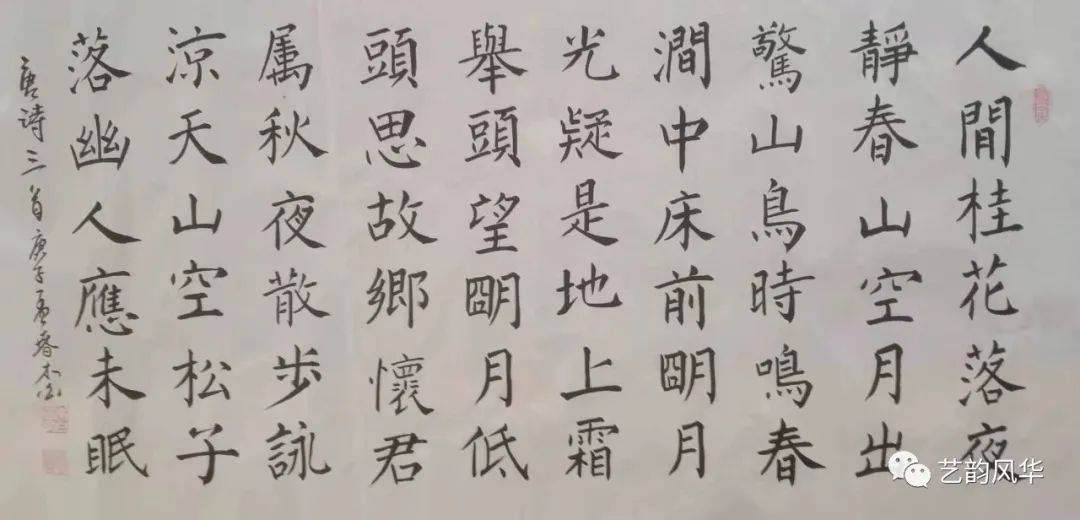 人閒桂花落夜
靜春山空月出
驚山鳥時鳴春
澗中床前朙月
光疑是地上霜
舉頭望朙月低
頭思故鄉懷君
属秋夜散步詠
涼天山空松子
落幽人應未眠
唐诗三首庚子孟春
艺韵风华